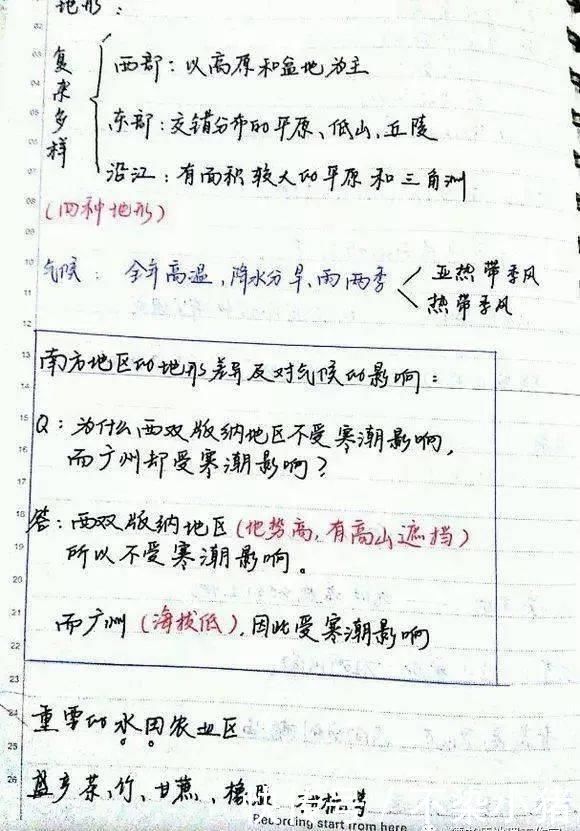 地形：
复杂多样
西部：以高原和盆地为主
东部：交错分布的平原、低山、丘陵
沿江：有面积较大的平原和三角洲
(四种地形)
气候：全年高温，降水分旱、雨两季
亚热带季风
热带季风
南方地区的地形差异及对气候的影响：
Q：为什么西双版纳地区不受寒潮影响，
而广州却受寒潮影响？
答：西双版纳地区(地势高，有高山遮挡)
所以不受寒潮影响。
而广州(海拔低)，因此受寒潮影响
重要的水田农业区
盛产茶、竹、甘蔗、橡胶
Recording start from here